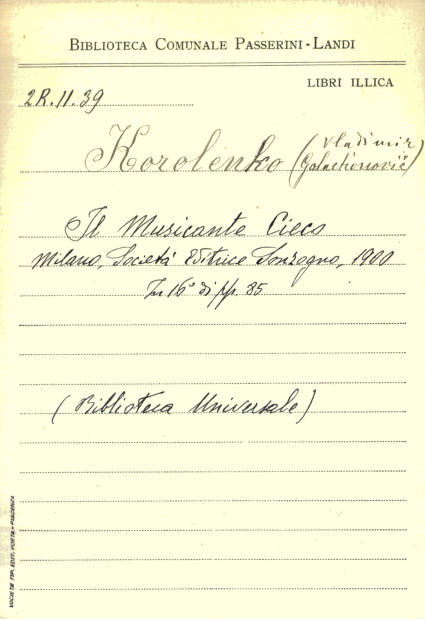 BIBLIOTECA COMUNALE PASSERINI-LANDI
LIBRI ILLICA
2R.II.39
Korolenko (Vladimir
Galactionovič)
Il Musicante Cieco
Milano, Società Editrice Sonzogno, 1900
In 16° di pp. 85
(Biblioteca Universale)
SOCIETÀ TIP. EDIT. PORTA - PIACENZA